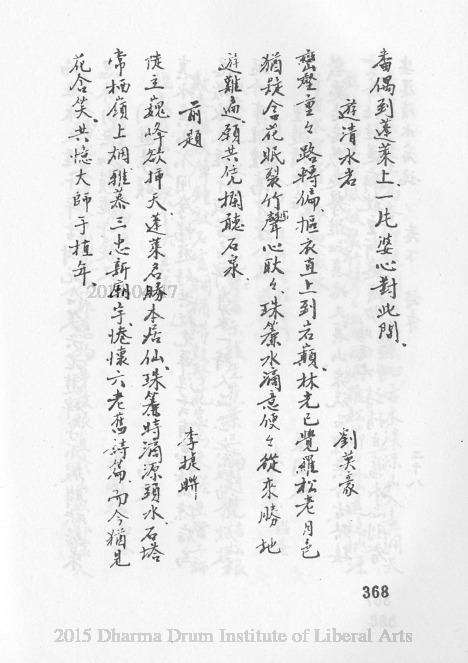 番偶到蓬萊上、一片婆心對此間、
遊清水岩 劉英豪
巒壑重々路轉偏、摳衣直上到岩巔、林光已覺羅松老、月色
猶疑含花眠、裂竹聲心耿々、珠簾水滴意便々、從來勝地
遊難遍、願共凭欄聽石泉、
前題 李捷
陡立巍峰欲插天、蓬萊名勝本居仙、珠簾時滴源頭水、石塔
常栖嶺上烟、雅慕三忠新廟宇、惓懷六老舊詩篇、而今猶見
花含笑、共憶大師手植年、
368
2015 Dharma Drum Institute of Liberal Arts